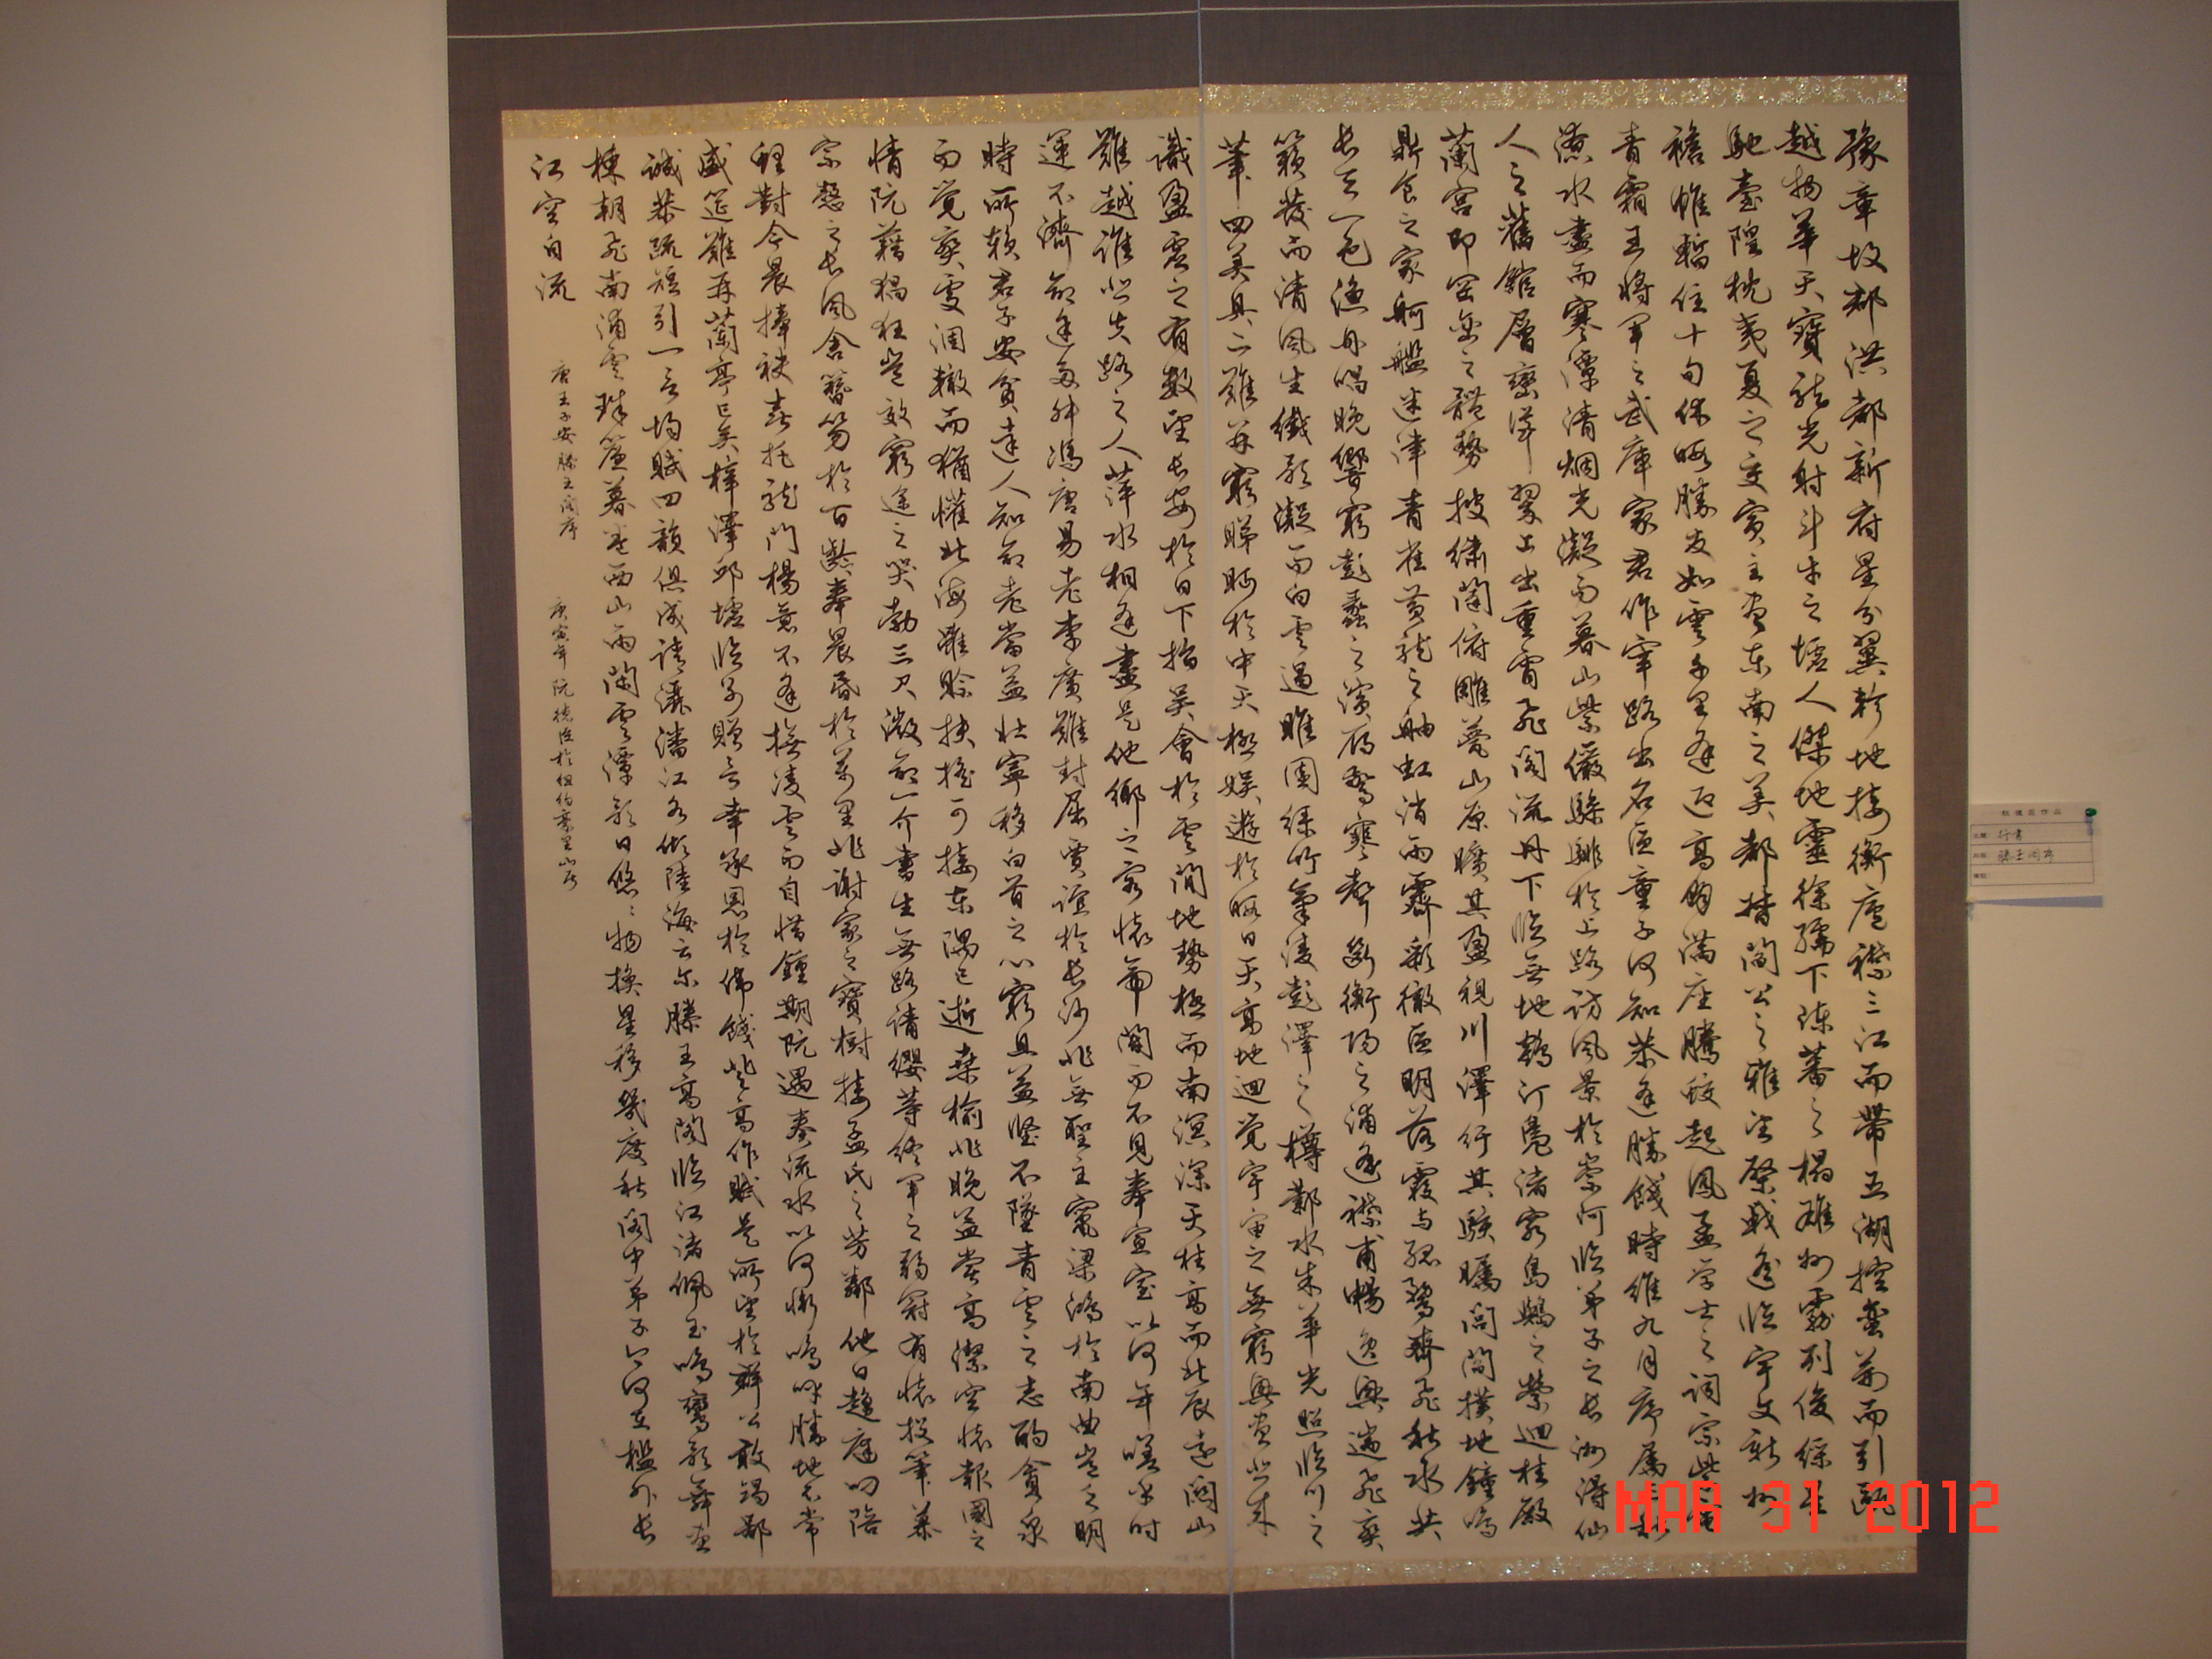 豫章故郡洪都新府星分翼軫地接衡廬襟三江而帶五湖控蠻荊而引甌
越物華天寶龍光射斗牛之墟人傑地靈徐孺下陳蕃之榻雄州霧列俊綵星
馳臺隍枕夷夏之交賓主盡東南之美都督閻公之雅望棨戟遙臨宇文新州
襜帷暫住十旬休暇勝友如雲千里逢迎高朋滿座騰蛟起鳳孟學士之詞宗紫電
青霜王將軍之武庫家君作宰路出名區童子何知恭逢勝餞時維九月序屬三秋
潦水盡而寒潭清烟光凝而暮山紫儼驂騑於上路訪風景於崇阿臨弟子之長洲得仙
人之舊館層巒聳翠上出重霄飛閣流丹下臨無地鶴汀鳧渚窮島嶼之縈迴桂殿
蘭宮即岡巒之體勢披繡闥俯雕甍山原曠其盈視川澤紆其駭矚閭閻撲地鐘鳴
鼎食之家舸艦迷津青雀黃龍之舳虹消雨霽彩徹區明落霞與孤鶩齊飛秋水共
長天一色漁舟唱晚響窮彭蠡之濱雁驚寒聲斷衡陽之浦遙襟甫暢逸興遄飛爽
籟發而清風生纖歌凝而白雲遏睢園綠竹氣凌彭澤之樽鄴水朱華光照臨川之
筆四美具二難并窮睇眄於中天極娛遊於暇日天高地迥覺宇宙之無窮興盡悲來
識盈虛之有數望長安於日下指吳會於雲間地勢極而南溟深天柱高而北辰遠關山
難越誰悲失路之人萍水相逢盡是他鄉之客懷帝閽而不見奉宣室以何年嗟乎時
運不濟命途多舛馮唐易老李廣難封屈賈誼於長沙非無聖主竄梁鴻於南曲豈乏明
時所賴君子安貧達人知命老當益壯寧移白首之心窮且益堅不墜青雲之志酌貪泉
而覺爽處涸轍而猶懽北海雖賒扶搖可接東隅已逝桑榆非晚孟嘗高潔空懷報國之
情阮藉猖狂豈效窮途之哭勃三尺微命一介書生無路請纓等終軍之弱冠有懷投筆慕
宗愨之長風舍簪笏於百齡奉晨昏於萬里非謝家之寶樹接孟氏之芳鄰他日趨庭叨陪
鯉對今晨捧袂喜托龍門楊意不逢撫凌雲而自惜鍾期既遇奏流水以何慚嗚呼勝地不常
盛筵難再蘭亭已矣梓澤邱墟臨別贈言幸承恩於偉餞登高作賦是所望於群公敢竭鄙
誠恭疏短引一言均賦四韻俱成請灑潘江各傾陸海云爾滕王高閣臨江渚佩玉鳴鸞歌舞罷畫
棟朝飛南浦雲珠簾暮捲西山雨閑雲潭影日悠悠物換星移幾度秋閣中帝子今何在檻外長
江空自流
唐王子安滕王閣序
庚寅年 阮德臣於紐約豪里山居
行書
滕王閣序